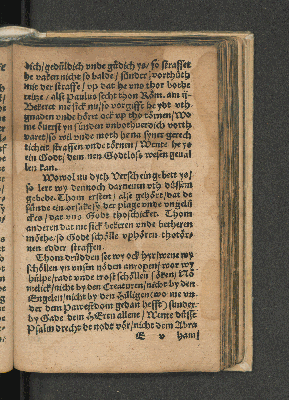 dich/ gedüldich vnde güdich ys/ so straffet
he vaken nicht so balde/ sünder vorthüth
mit der straffe/ vp dat he vns thor bothe
reitze/ alse Paulus secht thon Röm. am ij.
Bekere me sick nu/ so vorgifft he ydt vth
gnaden vnde höret ock vp tho törnen/ Wo
me öuerst yn sünden vnbothuerdich vorth
varet/ so wil vnde moth he na syner gerech
ticheit straffen vnde törnen/ Wente he ys
ein Godt/ dem nen Godtloss wesen geual
len kan.
Wowol nu dyth Versch ein gebet ys/
so lere wy dennoch darneuen vth düssem
gebede. Thom ersten/ alse gehört/ dat de
sünde ein orsake sy der plage vnde vngelü
ckes/ dat vns Godt thoschicket. Thom
anderen dat me sick bekeren vnde betheren
möthe/ so Gode schölle vphören thotör-
nen edder straffen.
Thom drüdden see wy ock hyr/ wene wy
schöllen yn vnsen nöden anropen/ wor wy
hülpe/ radt vnde trost schöllen söken/ Nö
melick/ nicht by den Creaturen/ nicht by den
Engelen/ nicht by den Hilligen (wo me vn-
der dem Pawestdom gedan hefft) sunder
by Gade dem HEren allene/ Wente düsse
Psalm drecht de node vör/ nicht dem Abra
E v ham/